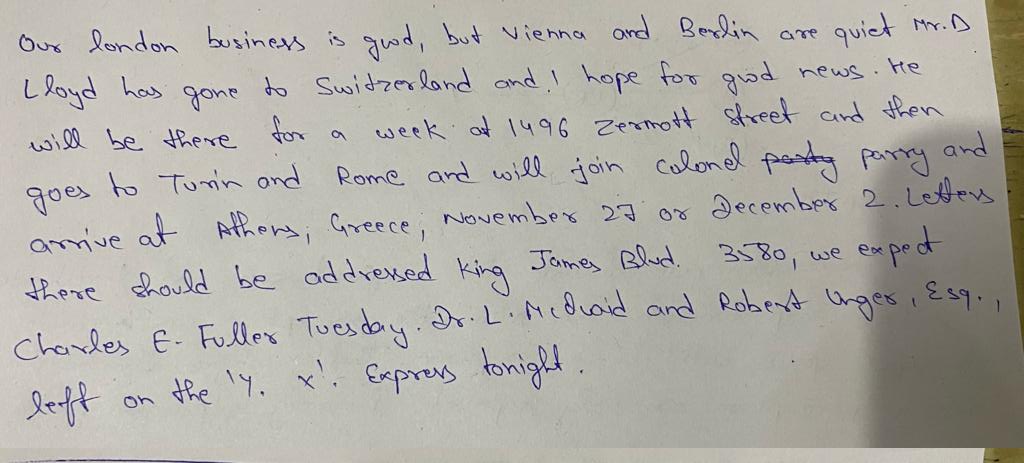 Our london business is good, but Vienna and Berlin are quiet Mr. D
Lloyd has gone to Switzerland and I hope for good news. He
will be there for a week at 1496 Zermott Street and then
goes to Turin and Rome and will join Colonel party parry and
arrive at Athens, Greece, November 27 or December 2. Letters
there should be addressed King James Blvd. 3580, we expect
Charles E. Fuller Tuesday. Dr. L. McQuaid and Robert Unger, Esq.,
left on the 'Y. X'. Express tonight.